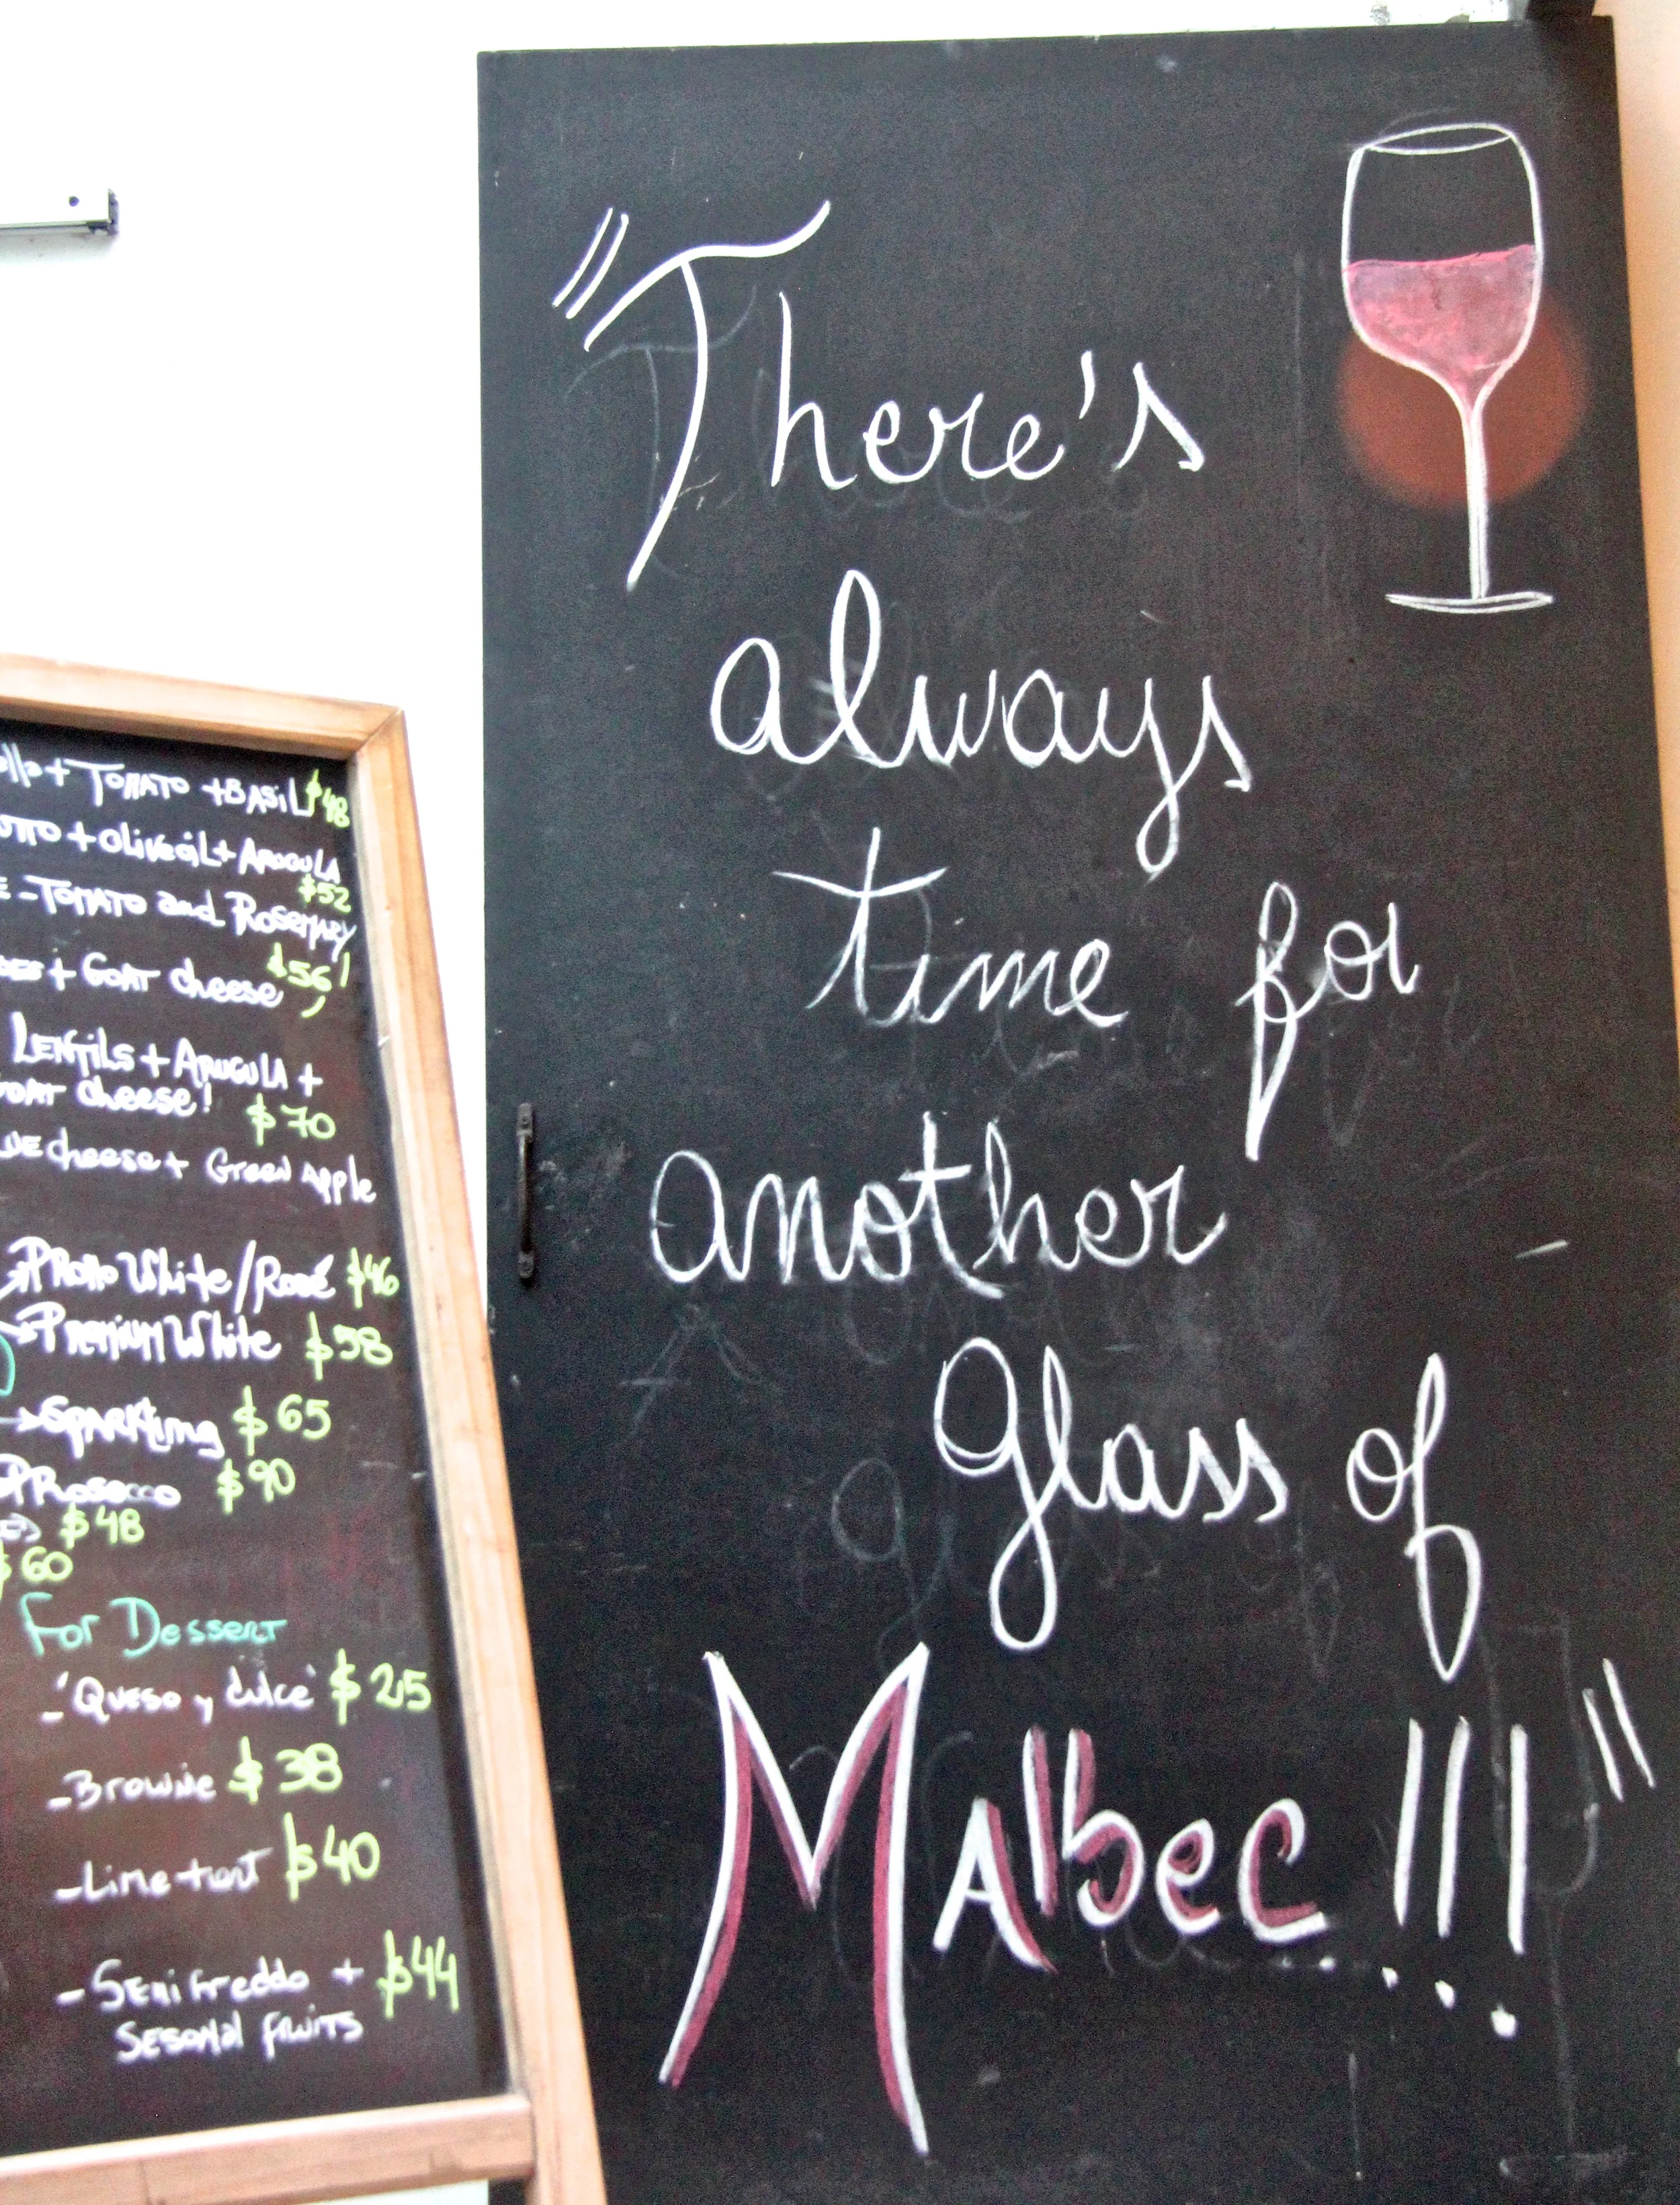 TOMATO + BASIL $48
+ OliveoiL + ARUGULA
$52
- TOMATO and ROSEMARY
+ GOAT cheese $56
LENTILS + ARUGULA +
cheese! $70
cheese + Green Apple
PROMO White/Rosé $46
PREMIUM White $58
SPARKling $65
PROSecco $90
$48
$60
For Dessert
- 'Queso y dulce' $25
- Brownie $38
- Lime tart $40
- Semifreddo + $44
SESONAL fRUITS
"There's
always
time for
another
Glass of
MAlbec!!!"